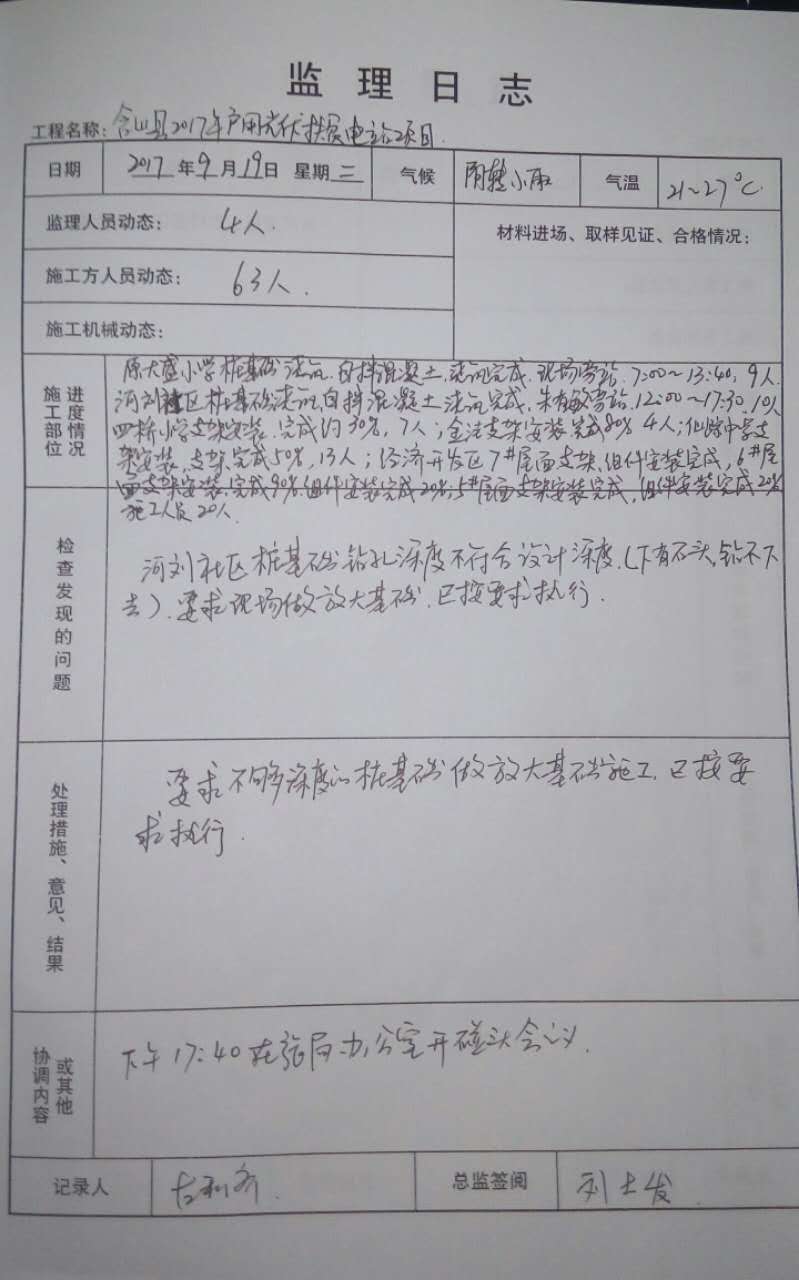 监理日志
工程名称：含山县2017年户用光伏扶贫电站项目.
日期 2017年9月19日 星期二 气候 阴转小雨 气温 21~27℃
监理人员动态： 4人. 材料进场、取样见证、合格情况：
施工方人员动态： 63人.
施工机械动态：
施工部位 进度情况
原大盛小学桩基础浇筑.自拌混凝土,浇筑完成.现场旁站.7:00~13:40,9人.
河刘社区桩基础浇筑,自拌混凝土浇筑完成,朱有敏旁站.12:00~17:30,10人
四桥小学支架安装.完成约30%,7人；支架安装.完成80% 4人；仙踪中学支
架安装,支架完成50%,13人；经济开发区7#屋面支架、组件安装完成,6#屋
面支架安装完成90%.组件安装完成20%;5#屋面支架安装完成,组件安装完成20%
施工人员20人.
检查发现的问题
河刘社区桩基础钻孔深度不符合设计深度.(下有石头,钻不下
去).要求现场做放大基础.已按要求执行.
处理措施、意见、结果
要求不够深度的桩基础做放大基础施工.已按要
求执行.
协调内容 或其他
下午17:40在张局办公室开碰头会议.
记录人 总监签阅 刘士发